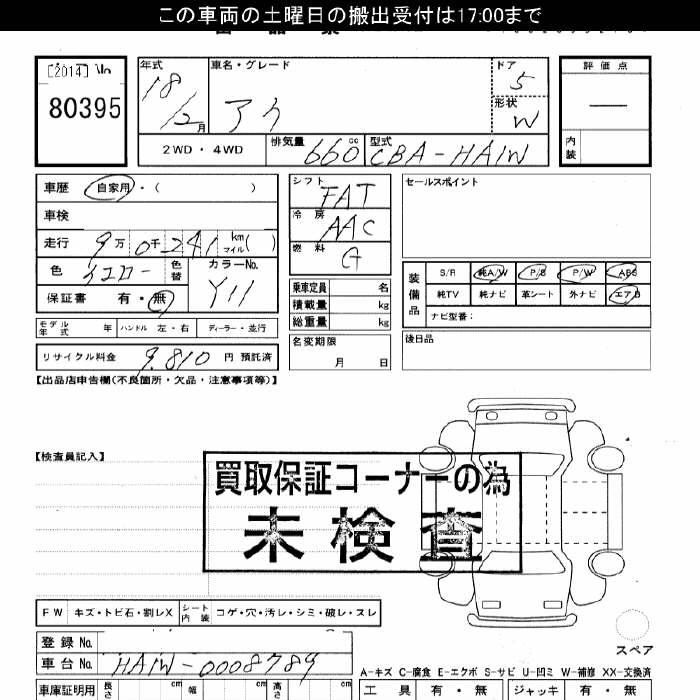 この車両の土曜日の搬出受付は17:00まで
[2014] No
80395
年式 18/2月
車名・グレード アイ
ドア 5
形状 W
評価点
内装
2WD・4WD
排気量 660 cc
型式 CBA-HA1W
車歴 自家用・( )
車検
走行 9万0千241 km マイル( )
色 イエロー 色替 カラーNo. Y11
保証書 有・無
モデル年式 年 ハンドル 左・右 ディーラー・並行
リサイクル料金 9,810 円 預託済
シフト FAT
冷房 AAC
燃料 G
乗車定員 名
積載量 kg
総重量 kg
名変期限
月 日
セールスポイント
装備品 S/R 純A/W P/S P/W ABS
純TV 純ナビ 革シート 外ナビ エアB
ナビ型番:
後日品
【出品店申告欄(不良箇所・欠品・注意事項等)】
【検査員記入】
買取保証コーナーの為
未検査
FW キズ・トビ石・割レX シート内装 コゲ・穴・汚レ・シミ・破レ・スレ
登録 No.
車台 No. HA1W-0008789
スペア
A-キズ C-腐食 E-エクボ S-サビ U-凹ミ W-補修 XX-交換済
車庫証明用 長さ cm 幅 cm 高さ cm
工具 有・無 ジャッキ 有・無